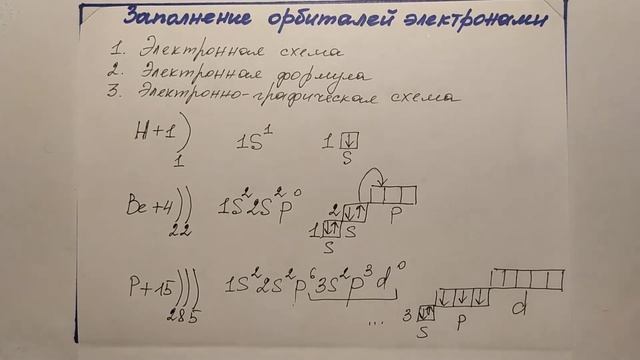 Заполнение орбиталей электронами
1. Электронная схема
2. Электронная формула
3. Электронно-графическая схема
H+1) 1S¹ 1 ↓
1 S
Be+4)) 1S²2S²p⁰ 2 ↓↑ p
22 1 ↓↑ S
S
P+15))) 1S²2S²p⁶3S²p³d⁰ 3 ↓↑ ↓ ↓ ↓
285 ... S p d